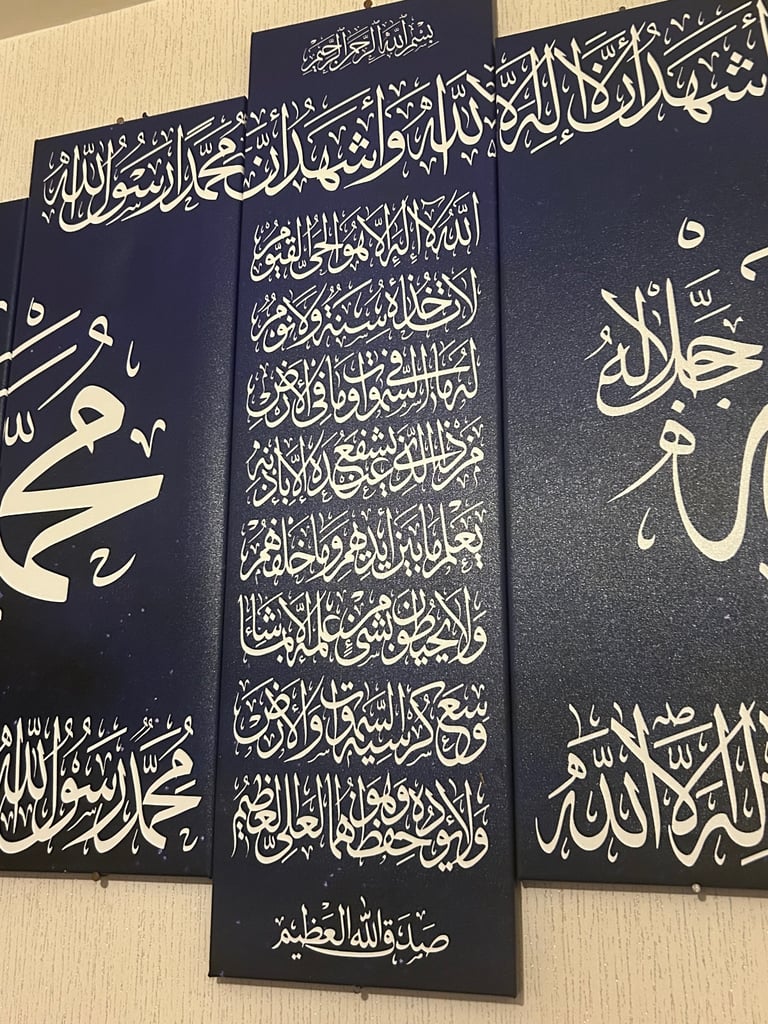 بسم الله الرحمن الرحيم
أشهد أن لا إله إلا الله وأشهد أن محمدا رسول الله
الله لا إله إلا هو الحي القيوم
لا تأخذه سنة ولا نوم
له ما في السموات وما في الأرض
من ذا الذي يشفع عنده إلا بإذنه
يعلم ما بين أيديهم وما خلفهم
ولا يحيطون بشيء من علمه إلا بما شاء
وسع كرسيه السموات والأرض
ولا يؤده حفظهما وهو العلي العظيم
صدق الله العظيم
جل جلاله
إله إلا الله
محمد
محمد رسول الله